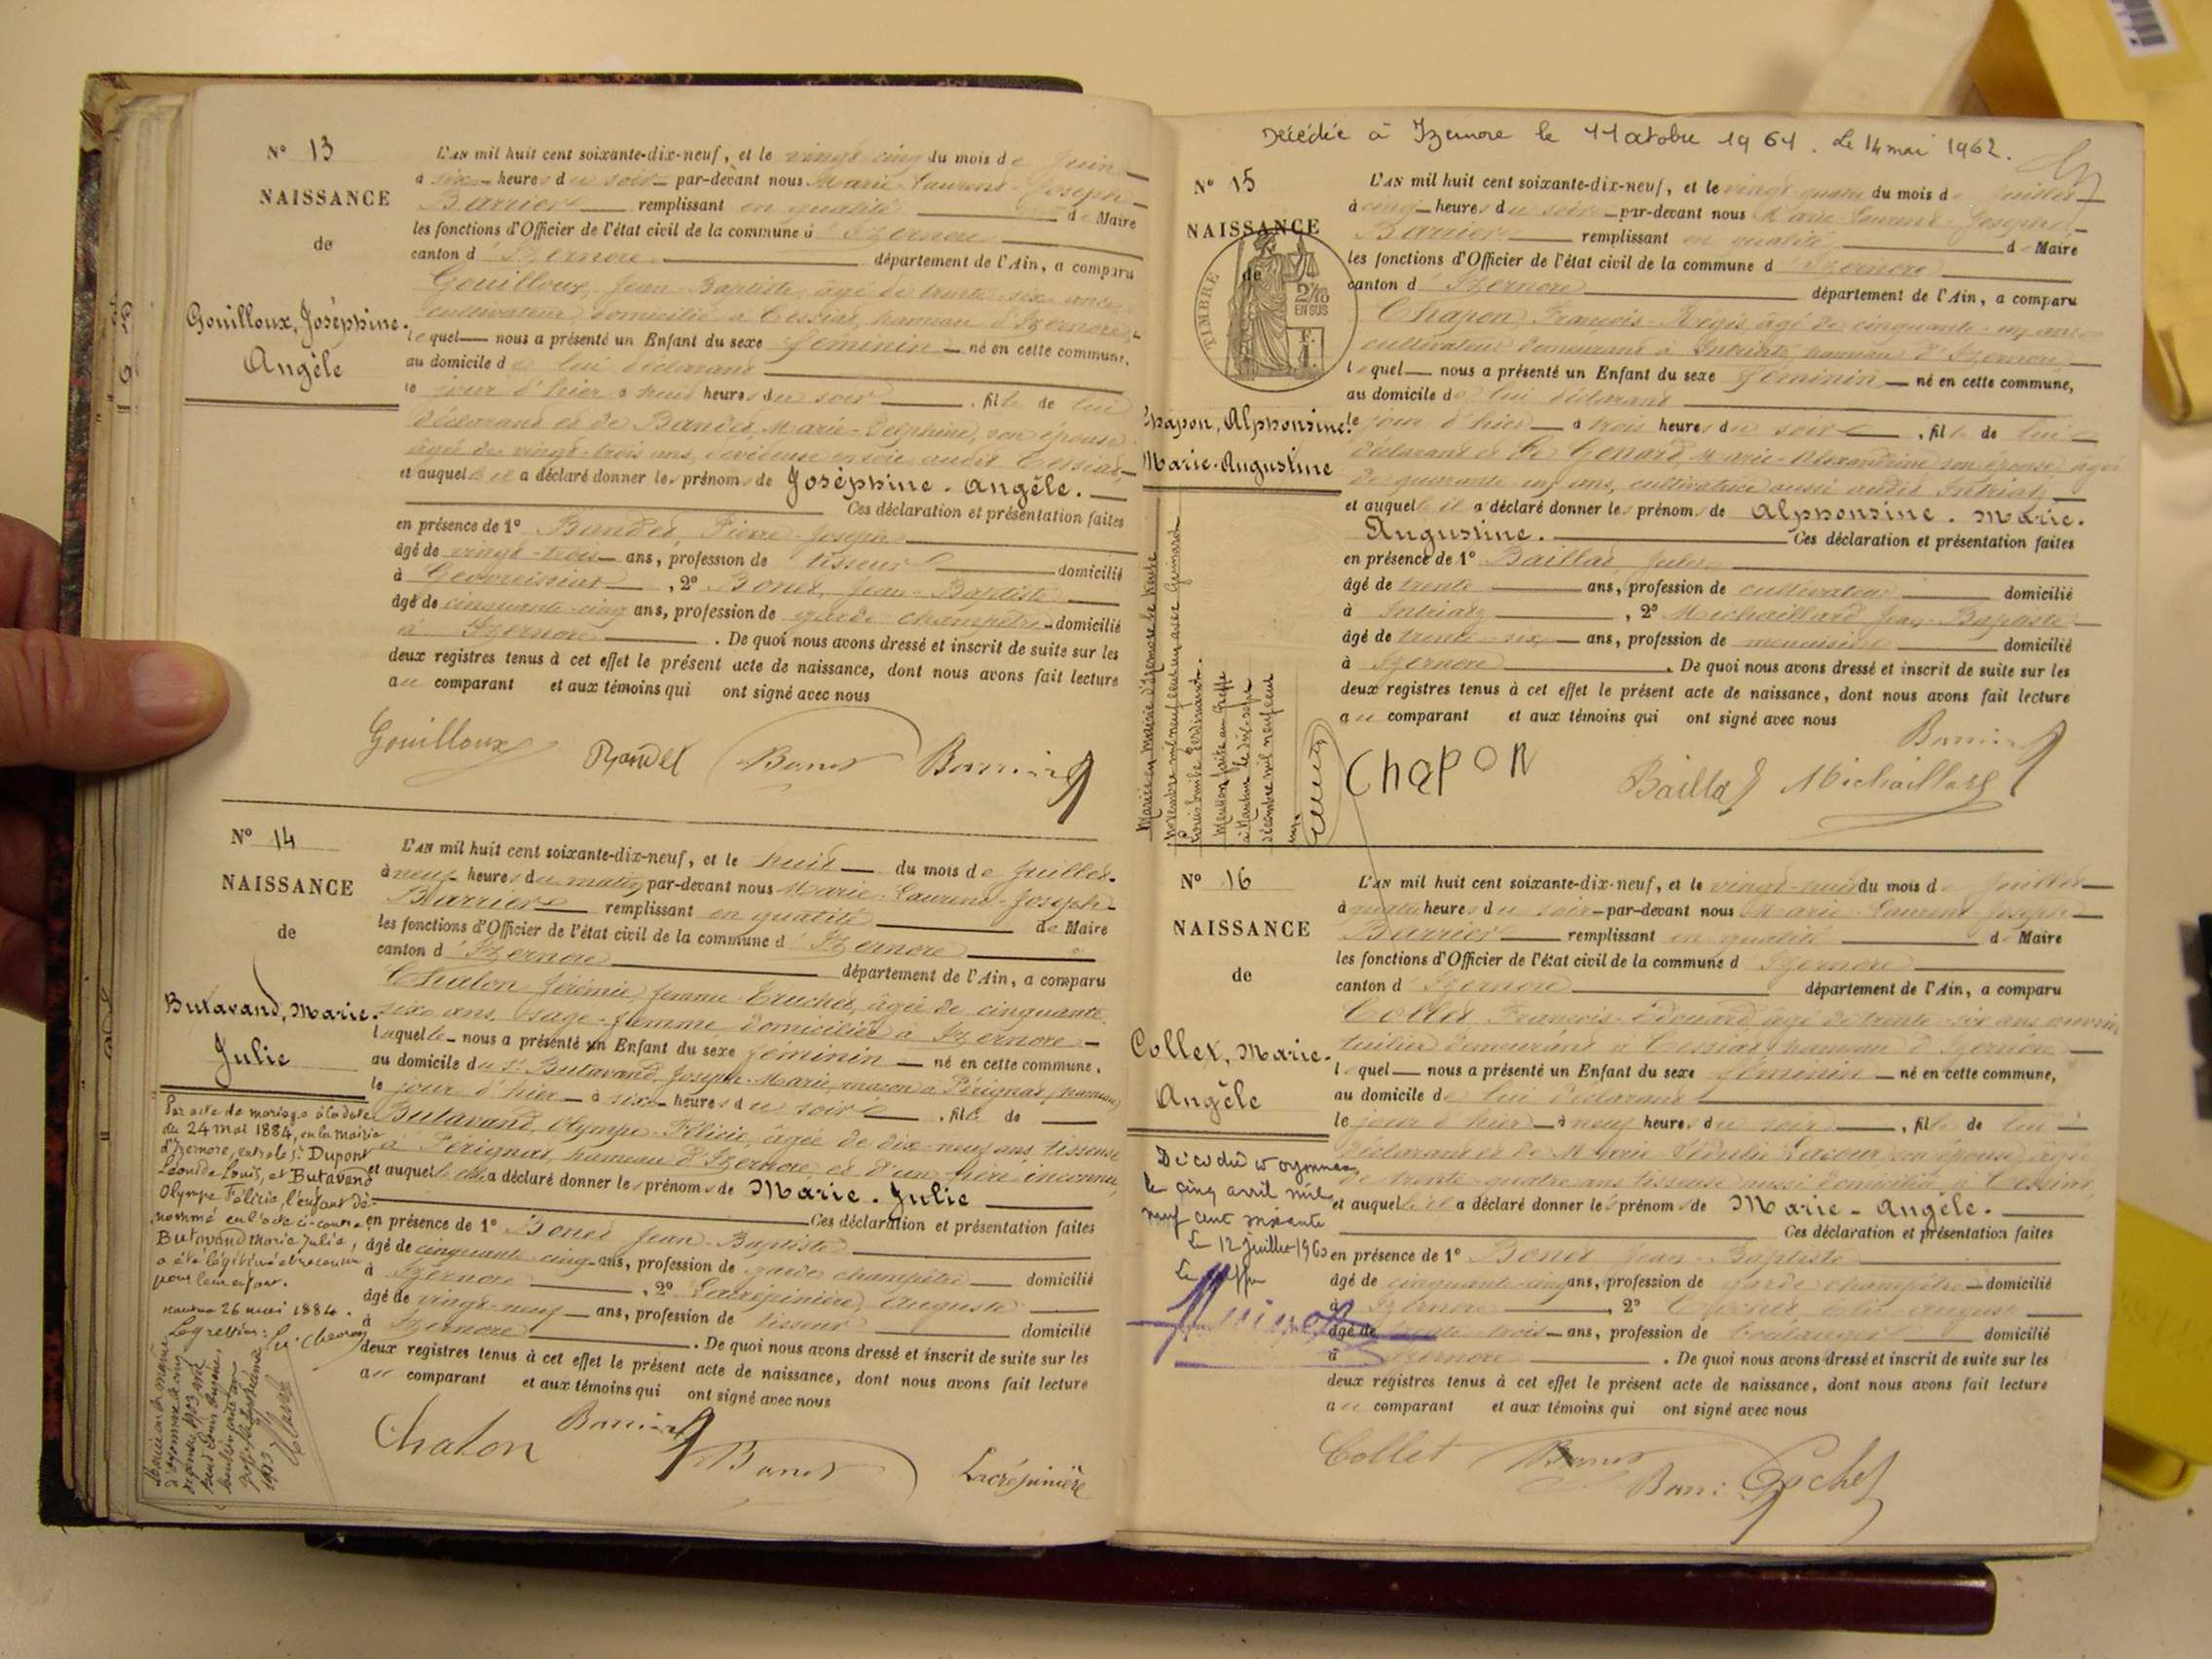 N° 13
NAISSANCE
de
Gouilloux, Joséphine.
Angèle
L'AN mil huit cent soixante-dix-neuf, et le vingt cinq du mois de Juin
à six heures du soir par-devant nous Marie-Laurent-Joseph
Barrier remplissant en qualité de Maire
les fonctions d'Officier de l'état civil de la commune d'Izernore
canton d'Izernore département de l'Ain, a comparu
Gouilloux, Jean-Baptiste, âgé de trente-six ans,
cultivateur domicilié à Cessiat, hameau d'Izernore,
lequel nous a présenté un Enfant du sexe féminin né en cette commune,
au domicile de lui déclarant
le jour d'hier à huit heures du soir, fille de lui
déclarant et de Bandet, Marie-Delphine, son épouse
âgée de vingt-trois ans, dévideuse en soie audit Cessiat,
et auquelle il a déclaré donner les prénoms de Joséphine. Angèle.
Ces déclaration et présentation faites
en présence de 1° Bandet, Pierre-Joseph
âgé de vingt-trois ans, profession de tisseur domicilié
à Geovreissiat, 2° Bonet, Jean-Baptiste
âgé de cinquante-cinq ans, profession de garde champêtre domicilié
à Izernore. De quoi nous avons dressé et inscrit de suite sur les
deux registres tenus à cet effet le présent acte de naissance, dont nous avons fait lecture
au comparant et aux témoins qui ont signé avec nous
Gouilloux Bandet Bonet Barrier
N° 14
NAISSANCE
de
Butavand, Marie.
Julie
L'AN mil huit cent soixante-dix-neuf, et le huit du mois de Juillet.
à neuf heures du matin par-devant nous Marie-Laurent-Joseph
Barrier remplissant en qualité de Maire
les fonctions d'Officier de l'état civil de la commune d'Izernore
canton d'Izernore département de l'Ain, a comparu
Chalon Jérémie, femme Truchet, âgée de cinquante
six ans, sage-femme domiciliée à Izernore
laquelle nous a présenté un Enfant du sexe féminin né en cette commune,
au domicile du Sr Butavand, Joseph-Marie, maçon à Pérignat, hameau
le jour d'hier à six heures du soir, fille de
Butavand, Olympe-Félicie, âgée de dix-neuf ans, tisseuse
à Pérignat, hameau d'Izernore, et d'un père inconnu,
et auquelle elle a déclaré donner les prénoms de Marie. Julie
Ces déclaration et présentation faites
en présence de 1° Bonet Jean-Baptiste
âgé de cinquante-cinq ans, profession de garde champêtre domicilié
à Izernore, 2° Lacrépinière, Auguste
âgé de vingt-neuf ans, profession de tisseur domicilié
à Izernore. De quoi nous avons dressé et inscrit de suite sur les
deux registres tenus à cet effet le présent acte de naissance, dont nous avons fait lecture
au comparant et aux témoins qui ont signé avec nous
Chalon Barrier Bonet Lacrépinière
Par acte de mariage à la date
du 24 mai 1884, en la Mairie
d'Izernore, entre le Sr Dupont
Léonide Louis, et Butavand
Olympe Félicie, l'enfant dé-
nommé en l'acte ci-contre
Butavand Marie Julie,
a été légitimé et reconnu
pour leur enfant.
Nantua 26 mai 1884.
Le greffier:
Décédée à Izernore le 11 octobre 1961. Le 14 mai 1962.
N° 15
NAISSANCE
de
TIMBRE
2/10
EN SUS
Chapon, Alphonsine.
Marie-Augustine
L'AN mil huit cent soixante-dix-neuf, et le vingt quatre du mois de Juillet
à cinq heures du soir par-devant nous Marie-Laurent-Joseph
Barrier remplissant en qualité de Maire
les fonctions d'Officier de l'état civil de la commune d'Izernore
canton d'Izernore département de l'Ain, a comparu
Chapon, François-Régis âgé de cinquante-un ans
cultivateur demeurant à Intriat, hameau d'Izernore
lequel nous a présenté un Enfant du sexe féminin né en cette commune,
au domicile de lui déclarant
le jour d'hier à trois heures du soir, fille de lui
déclarant et de Genard, Marie-Alexandrine son épouse âgée
de quarante-un ans, cultivatrice aussi audit Intriat
et auquelle il a déclaré donner les prénoms de Alphonsine. Marie.
Augustine. Ces déclaration et présentation faites
en présence de 1° Baillat, Jules
âgé de trente ans, profession de cultivateur domicilié
à Intriat, 2° Michaillard Jean-Baptiste
âgé de trente-six ans, profession de menuisier domicilié
à Izernore. De quoi nous avons dressé et inscrit de suite sur les
deux registres tenus à cet effet le présent acte de naissance, dont nous avons fait lecture
au comparant et aux témoins qui ont signé avec nous
Chapon Baillat Michaillard Barrier
Mariée en mairie d'Izernore le trente
novembre mil neuf cent un avec Guinard
Louis Emile Ferdinand.
Mention faite au Greffe
à Nantua le dix-sept
décembre mil neuf cent
un.
N° 16
NAISSANCE
de
Collet, Marie.
Angèle
L'AN mil huit cent soixante-dix-neuf, et le vingt-huit du mois de Juillet
à quatre heures du soir par-devant nous Marie-Laurent-Joseph
Barrier remplissant en qualité de Maire
les fonctions d'Officier de l'état civil de la commune d'Izernore
canton d'Izernore département de l'Ain, a comparu
Collet François-Edouard, âgé de trente-six ans ouvrier
tuilier demeurant à Cessiat hameau d'Izernore
lequel nous a présenté un Enfant du sexe féminin né en cette commune,
au domicile de lui déclarant
le jour d'hier à neuf heures du soir, fille de lui
déclarant et de Marie Lacour son épouse, âgée
de trente-quatre ans tisseuse aussi domiciliée à Cessiat,
et auquelle il a déclaré donner les prénoms de Marie-Angèle.
Ces déclaration et présentation faites
en présence de 1° Bonet Jean-Baptiste
âgé de cinquante-cinq ans, profession de garde champêtre domicilié
à Izernore, 2° Cochet
âgé de trente-trois ans, profession de boulanger domicilié
à Izernore. De quoi nous avons dressé et inscrit de suite sur les
deux registres tenus à cet effet le présent acte de naissance, dont nous avons fait lecture
au comparant et aux témoins qui ont signé avec nous
Collet Bonet Barrier Cochet
Décédée à Oyonnax
le cinq avril mil
neuf cent soixante
Le 12 juillet 1960